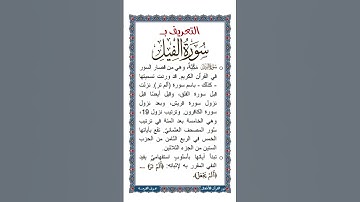 التعريف بـ
سُورَةُ الفِيلِ
سورة مكية، وهي من قصار السور
في القرآن الكريم، قد وردت تسميتها
- كذلك - باسم سورة (ألم تر)، نزلت
قبل سورة الفلق، وقيل أيضا قبل
نزول سورة قريش، وبعد نزول
سورة الكافرون، وترتيب نزول 19،
وهي الخامسة بعد المئة في ترتيب
سُور المصحف العثماني، تقع بآياتها
الخمس في الربع الثامن من الحزب
الستين من الجزء الثلاثين.
تبدأ آياتها بأسلوب استفهامي يفيد
النفي المقرر به لإثباته: ﴿أَلَمْ تَرَ﴾ ...
﴿أَلَمْ يَجْعَلْ﴾.